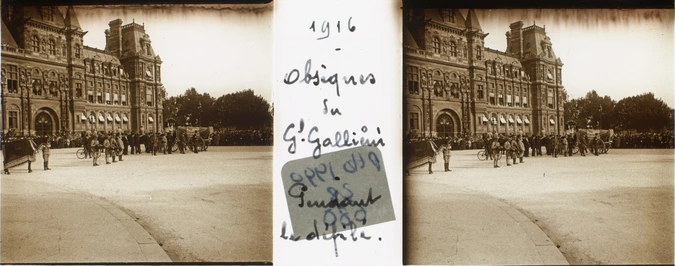 1916
-
Obsèques
du
Gᵃˡ Galliéni
Pendant
le défilé.